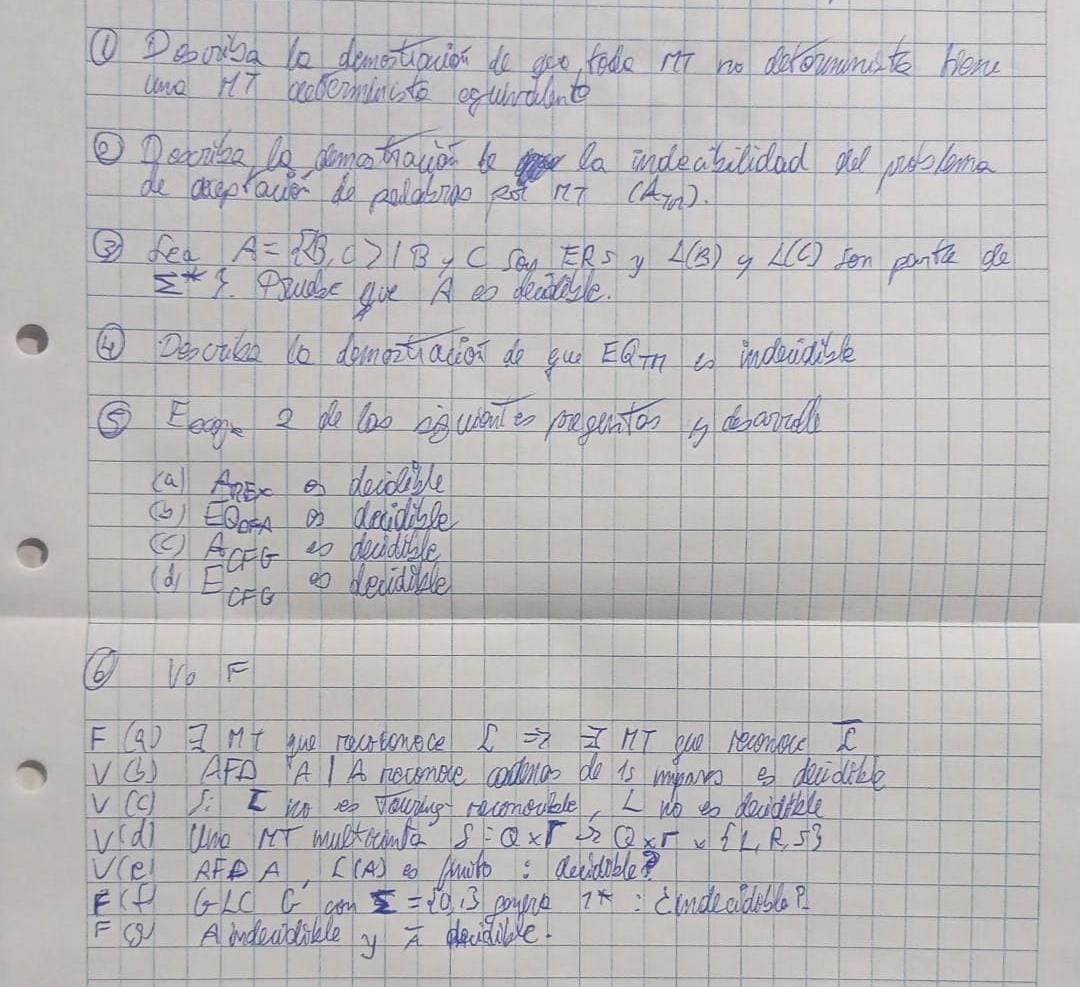 ① Describa la demostración de que toda MT no determinista tiene
una MT determinista equivalente
② Describa la demostración de la indecibilidad del problema
de aceptación de palabras por MT (A_TM).
③ Sea A = {<B, C> | B y C son ERs y L(B) y L(C) son parte de
Σ* }. Pruebe que A es decidible.
④ Describa la demostración de que EQ_TM es indecidible
⑤ Escoge 2 de las siguientes preguntas y desarrolle
(a) A_REX es decidible
(b) EQ_DFA es decidible
(c) A_CFG es decidible
(d) E_CFG es decidible
⑥ V o F
F (a) ∃ MT que reconoce L ⇒ ∃ MT que reconoce L̅
V (b) AFD A | A reconoce cadenas de 1s impares es decidible
V (c) Si L̅ no es Turing-reconocible, L no es decidible
V (d) Una MT multicinta δ = Q x Γ → Q x Γ x {L, R, S}
V (e) AFD A, L(A) es finito : decidible?
F (f) GLC G con Σ = {0,1} genera 1* : ¿indecidible?
F (g) A indecidible y A̅ decidible.